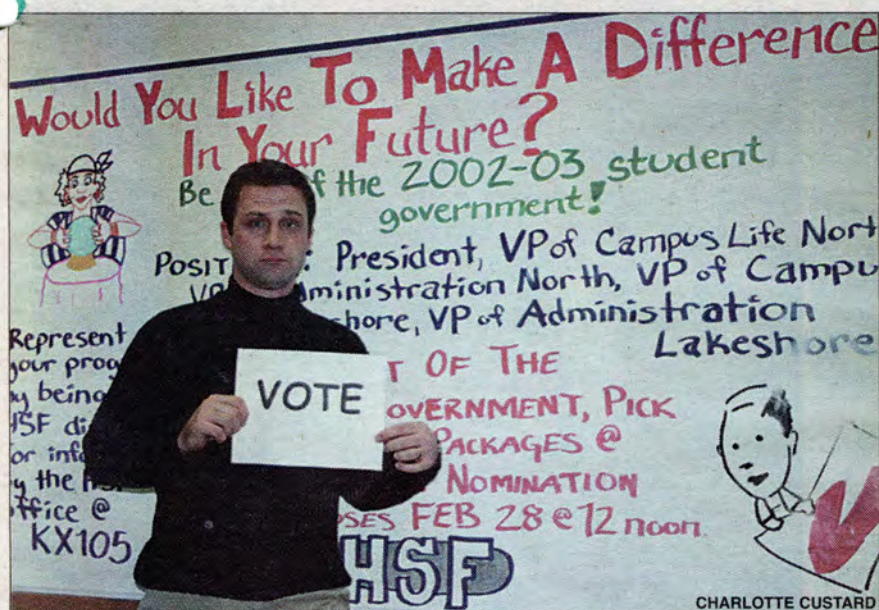 Would You Like To Make A Difference
In Your Future?
Be f the 2002-03 student
government!
POSIT : President, VP of Campus Life Nort
VP ministration North, VP of Campu
hore, VP of Administration
Lakeshore
Represent
your prog
by being
HSF di
or info
y the HSF
office @
KX105
VOTE
T OF THE
OVERNMENT, PICK
PACKAGES @
NOMINATION
OSES FEB 28 @ 12 noon.
HSF
CHARLOTTE CUSTARD